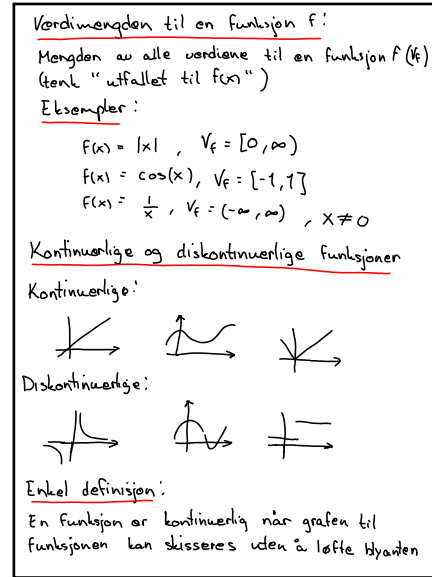 Verdimengden til en funksjon f:
Mengden av alle verdiene til en funksjon f (Vf)
(tenk "utfallet til f(x)")
Eksempler:
f(x) = |x| , Vf = [0, ∞)
f(x) = cos(x), Vf = [-1, 1]
f(x) = 1/x , Vf = (-∞, ∞) , x ≠ 0
Kontinuerlige og diskontinuerlige funksjoner
Kontinuerlige:
Diskontinuerlige:
Enkel definisjon:
En funksjon er kontinuerlig når grafen til
funksjonen kan skisseres uden å løfte blyanten